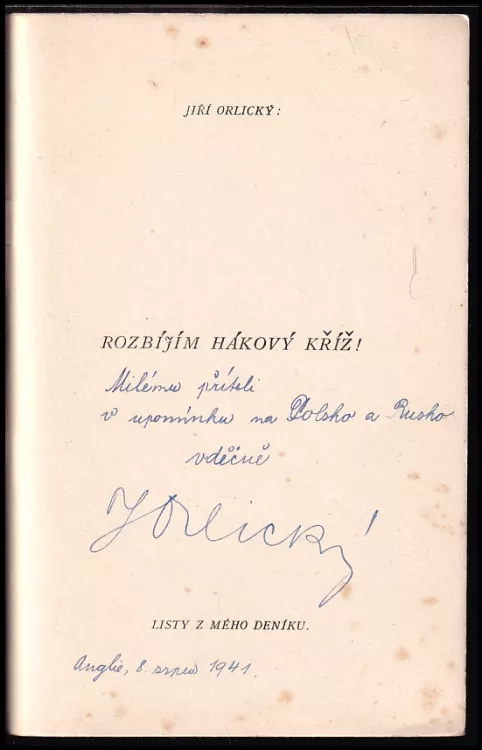 JIŘÍ ORLICKÝ:
ROZBÍJÍM HÁKOVÝ KŘÍŽ!
Milému příteli
v upomínku na Polsko a Rusko
vděčně
JOrlický
LISTY Z MÉHO DENÍKU.
Anglie, 8. srpen 1941.